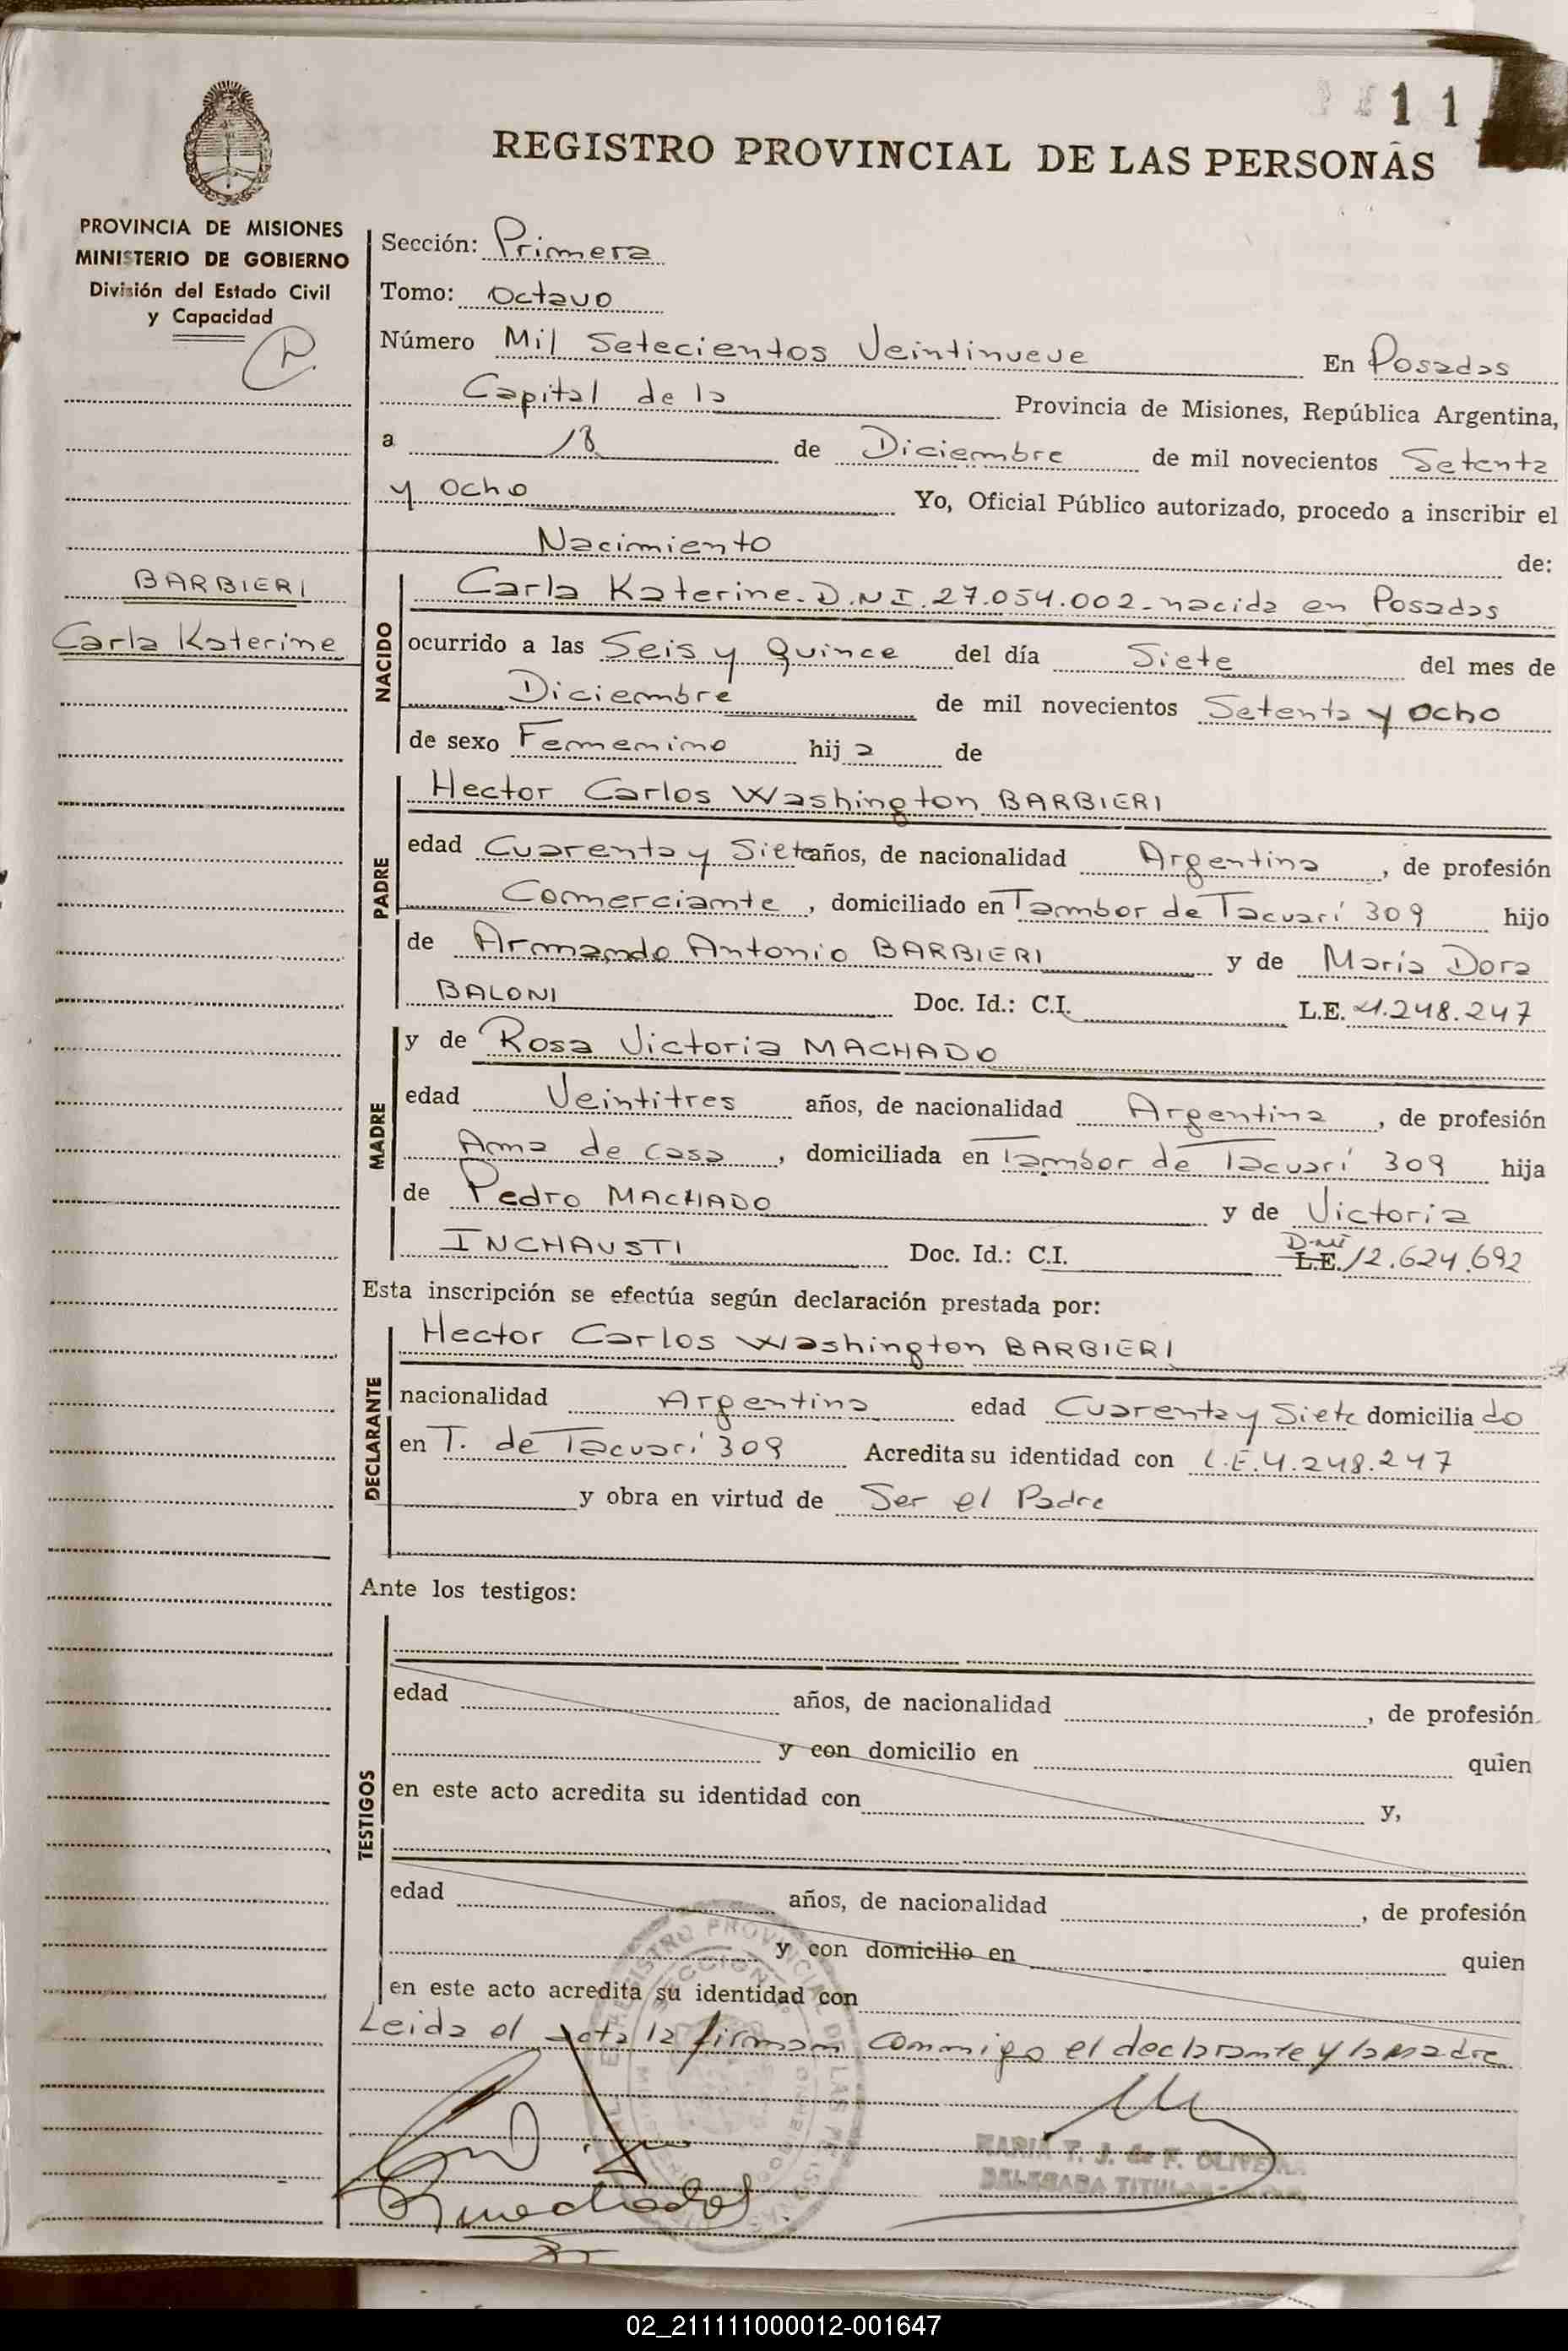 11
REGISTRO PROVINCIAL DE LAS PERSONAS
PROVINCIA DE MISIONES
MINISTERIO DE GOBIERNO
División del Estado Civil
y Capacidad
BARBIERI
Carla Katerine
Sección: Primera
Tomo: Octavo
Número Mil Setecientos Veintinueve En Posadas
Capital de la Provincia de Misiones, República Argentina,
a 18 de Diciembre de mil novecientos Setenta
y Ocho Yo, Oficial Público autorizado, procedo a inscribir el
Nacimiento de:
NACIDO
Carla Katerine. D.N.I. 27.054.002 - nacida en Posadas
ocurrido a las Seis y Quince del día Siete del mes de
Diciembre de mil novecientos Setenta y Ocho
de sexo Femenino hija de
PADRE
Hector Carlos Washington BARBIERI
edad Cuarenta y Siete años, de nacionalidad Argentina, de profesión
Comerciante, domiciliado en Tambor de Tacuarí 309 hijo
de Armando Antonio BARBIERI y de María Dora
BALONI Doc. Id.: C.I. L.E. 4.248.247
MADRE
y de Rosa Victoria MACHADO
edad Veintitres años, de nacionalidad Argentina, de profesión
Ama de casa, domiciliada en Tambor de Tacuarí 309 hija
de Pedro MACHADO y de Victoria
INCHAUSTI Doc. Id.: C.I. L.E. DNI 12.624.692
Esta inscripción se efectúa según declaración prestada por:
DECLARANTE
Hector Carlos Washington BARBIERI
nacionalidad Argentina edad Cuarenta y Siete domiciliado
en T. de Tacuarí 309 Acredita su identidad con L.E. 4.248.247
y obra en virtud de Ser el Padre
Ante los testigos:
TESTIGOS
edad años, de nacionalidad, de profesión
y con domicilio en quien
en este acto acredita su identidad con y,
edad años, de nacionalidad, de profesión
y con domicilio en quien
en este acto acredita su identidad con
Leida el acta la firman conmigo el declarante y la madre
REGISTRO PROVINCIAL DE LAS PERSONAS
SECCION
MARIA T. J. de F. OLIVEIRA
DELEGADA TITULAR
02_211111000012-001647